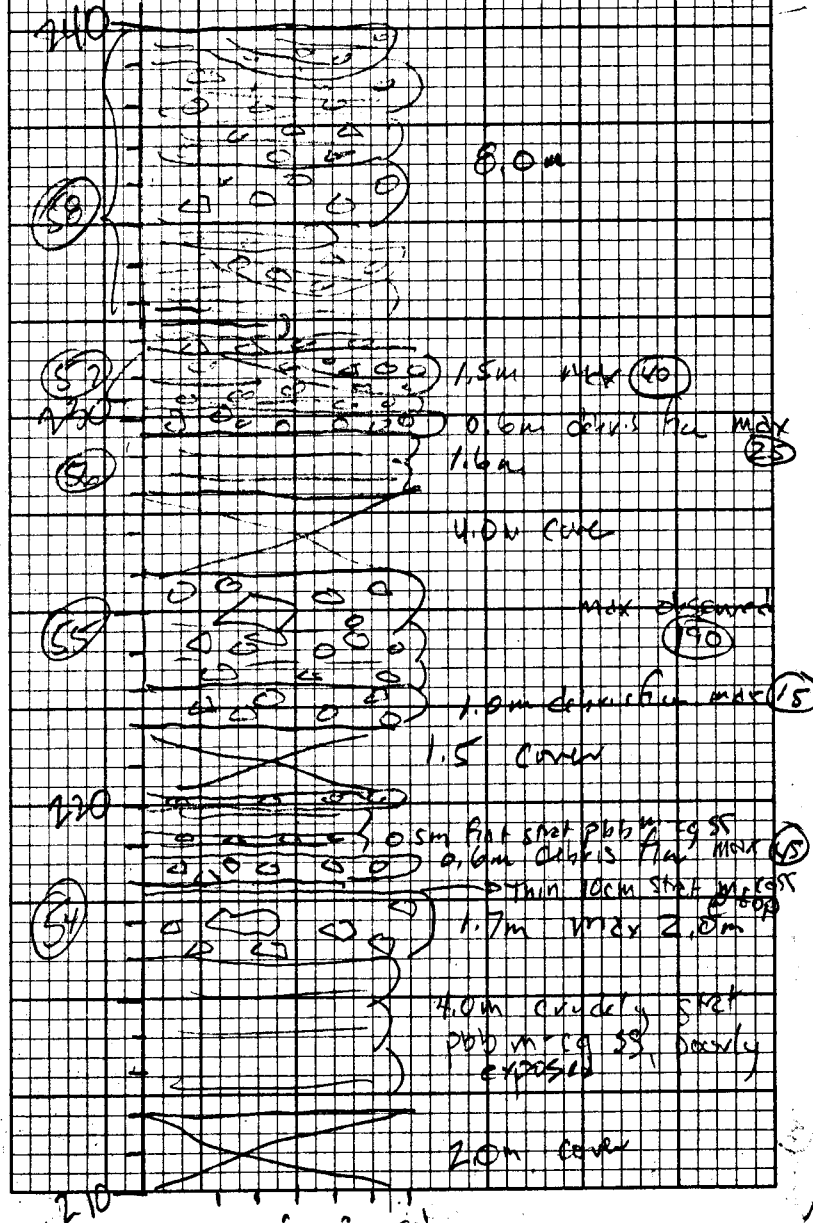 240
8.0m
58
57
1.5m max 40
230
0.6m debris flw max
25
56
1.6m
4.0m cover
max observed
190
55
1.0m debris flw max 15
1.5 cover
220
strat pbb m-cg ss
0.6m debris flw max 45
thin 10cm strat m-cg ss
@ top
54
1.7m max 2.0m
4.0m crudely strat
pbb m-cg ss, poorly
exposed
2.0m cover
210